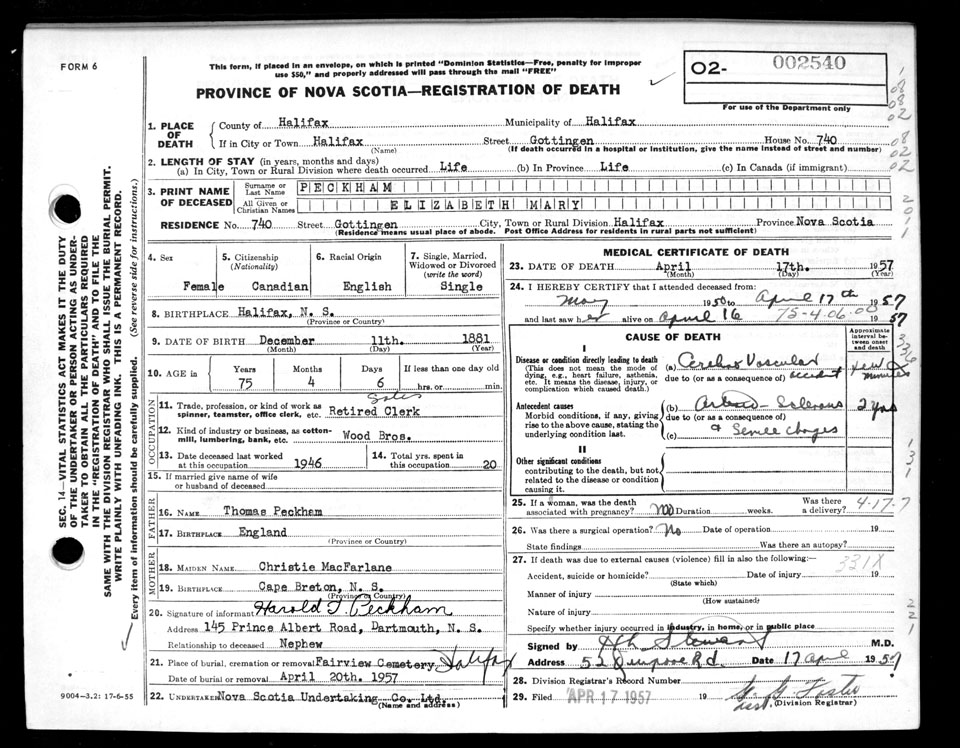 FORM 6
This form, if placed in an envelope, on which is printed "Dominion Statistics—Free, penalty for improper
use $50," and properly addressed will pass through the mail "FREE"
PROVINCE OF NOVA SCOTIA—REGISTRATION OF DEATH
O2- 002540
For use of the Department only
1. PLACE OF DEATH
County of Halifax Municipality of Halifax
If in City or Town Halifax Street Gottingen House No. 740
(Name) (If death occurred in a hospital or institution, give the name instead of street and number)
2. LENGTH OF STAY (in years, months and days)
(a) In City, Town or Rural Division where death occurred Life (b) In Province Life (c) In Canada (if immigrant)
3. PRINT NAME OF DECEASED
Surname or Last Name PECKHAM
All Given or Christian Names ELIZABETH MARY
RESIDENCE No. 740 Street Gottingen City, Town or Rural Division Halifax Province Nova Scotia
(Residence means usual place of abode. Post Office Address for residents in rural parts not sufficient)
SEC. 14—VITAL STATISTICS ACT MAKES IT THE DUTY
OF THE UNDERTAKER OR PERSON ACTING AS UNDER-
TAKER TO OBTAIN ALL THE PARTICULARS REQUIRED
IN THE "REGISTRATION OF DEATH" AND TO FILE THE
SAME WITH THE DIVISION REGISTRAR WHO SHALL ISSUE THE BURIAL PERMIT.
WRITE PLAINLY WITH UNFADING INK. THIS IS A PERMANENT RECORD.
Every item of information should be carefully supplied. (See reverse side for instructions.)
4. Sex
Female
5. Citizenship
(Nationality)
Canadian
6. Racial Origin
English
7. Single, Married,
Widowed or Divorced
(write the word)
Single
8. BIRTHPLACE Halifax, N. S.
(Province or Country)
9. DATE OF BIRTH December 11th. 1881
(Month) (Day) (Year)
10. AGE in Years Months Days If less than one day old
75 4 6 hrs. or min.
OCCUPATION
Sales
11. Trade, profession, or kind of work as
spinner, teamster, office clerk, etc. Retired Clerk
12. Kind of industry or business, as cotton-
mill, lumbering, bank, etc. Wood Bros.
13. Date deceased last worked
at this occupation 1946
14. Total yrs. spent in
this occupation 20
15. If married give name of wife
or husband of deceased
FATHER
16. NAME Thomas Peckham
17. BIRTHPLACE England
(Province or Country)
MOTHER
18. MAIDEN NAME Christie MacFarlane
19. BIRTHPLACE Cape Breton, N. S.
(Province or Country)
20. Signature of informant Harold T. Peckham
Address 145 Prince Albert Road, Dartmouth, N. S.
Relationship to deceased Nephew
21. Place of burial, cremation or removal Fairview Cemetery, Halifax
Date of burial or removal April 20th. 1957
22. UNDERTAKER Nova Scotia Undertaking Co. Ltd.
(Name and address)
9004—3.2: 17-6-55
MEDICAL CERTIFICATE OF DEATH
23. DATE OF DEATH April 17th. 1957
(Month) (Day) (Year)
24. I HEREBY CERTIFY that I attended deceased from:
May 1950 to April 17th 1957
and last saw her alive on April 16 1957
75-4.06.00
CAUSE OF DEATH
Approximate interval between onset and death
I
Disease or condition directly leading to death
(This does not mean the mode of
dying, e.g., heart failure, asthenia,
etc. It means the disease, injury, or
complication which caused death.)
(a) Cerebro Vascular
due to (or as a consequence of) accident
few minutes
Antecedent causes
Morbid conditions, if any, giving
rise to the above cause, stating the
underlying condition last.
(b) Arterio-Sclerosis 2 yrs
due to (or as a consequence of)
(c) & Senile Changes
II
Other significant conditions
contributing to the death, but not
related to the disease or condition
causing it.
25. If a woman, was the death
associated with pregnancy? No Duration weeks. Was there
a delivery?
4-17-7
26. Was there a surgical operation? No Date of operation 19
State findings Was there an autopsy?
27. If death was due to external causes (violence) fill in also the following:—
331X
Accident, suicide or homicide? Date of injury 19
(State which)
Manner of injury
(How sustained)
Nature of injury
Specify whether injury occurred in industry, in home, or in public place
Signed by Stewart M.D.
Address Rd. Date 17 April 1957
28. Division Registrar's Record Number
29. Filed APR 17 1957 19
Foster
(Division Registrar)